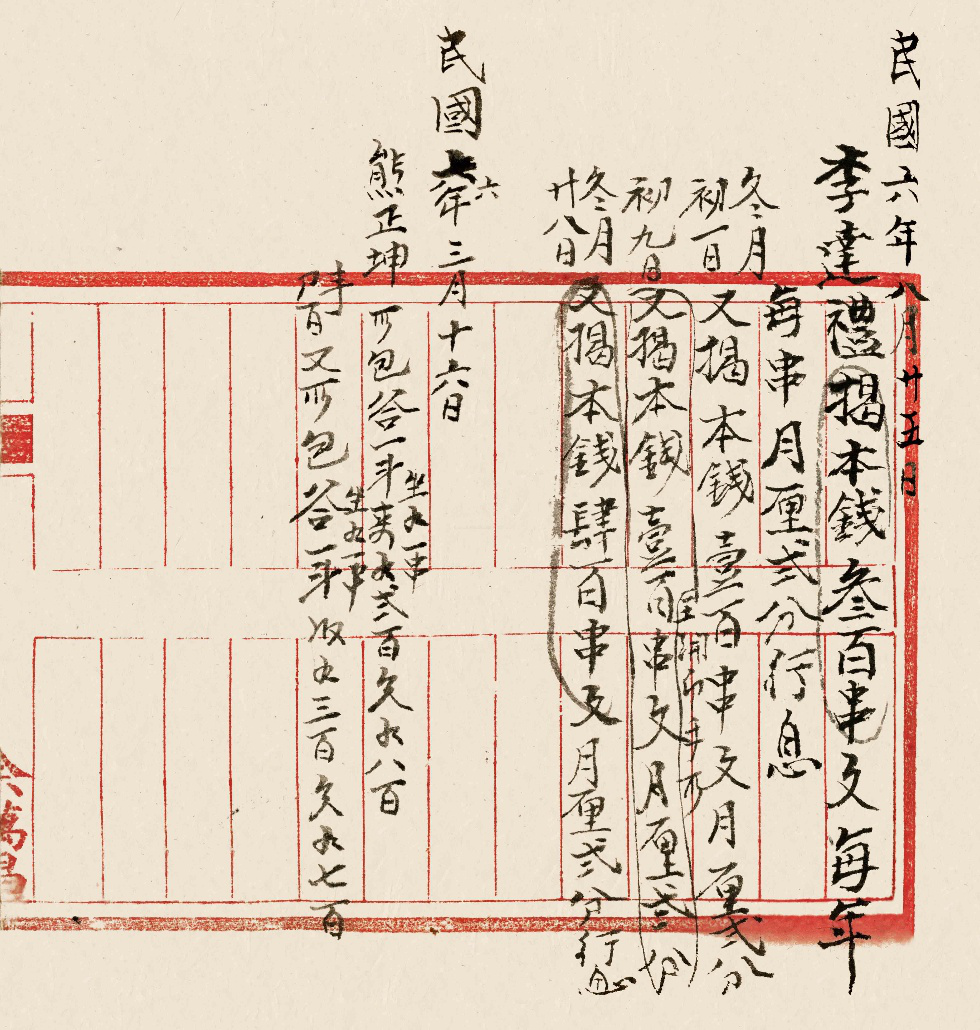 民國六年八月廿五日
李達禮揭本錢叁百串文每年
每串月厘弍分行息
冬月
初一日
又揭本錢壹百串文月厘弍分
初九日
又揭本錢壹百串文月厘弍分
冬月
廿八日
又揭本錢肆百串文月厘弍分行息
民國六年三月十六日
熊正坤
包谷一斗
弍百欠八百
又包谷一斗
三百欠七百
萬昌